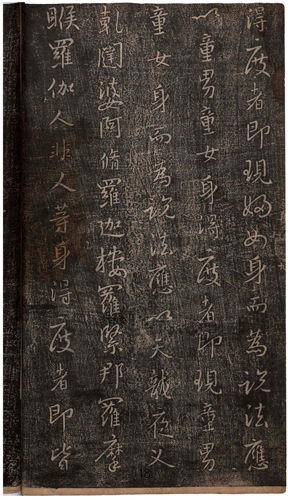 得度者即現婦女身而為說法應
以童男童女身得度者即現童男
童女身而為說法應以天龍夜叉
乾闥婆阿脩羅迦樓羅緊那羅摩
睺羅伽人非人等身得度者即皆